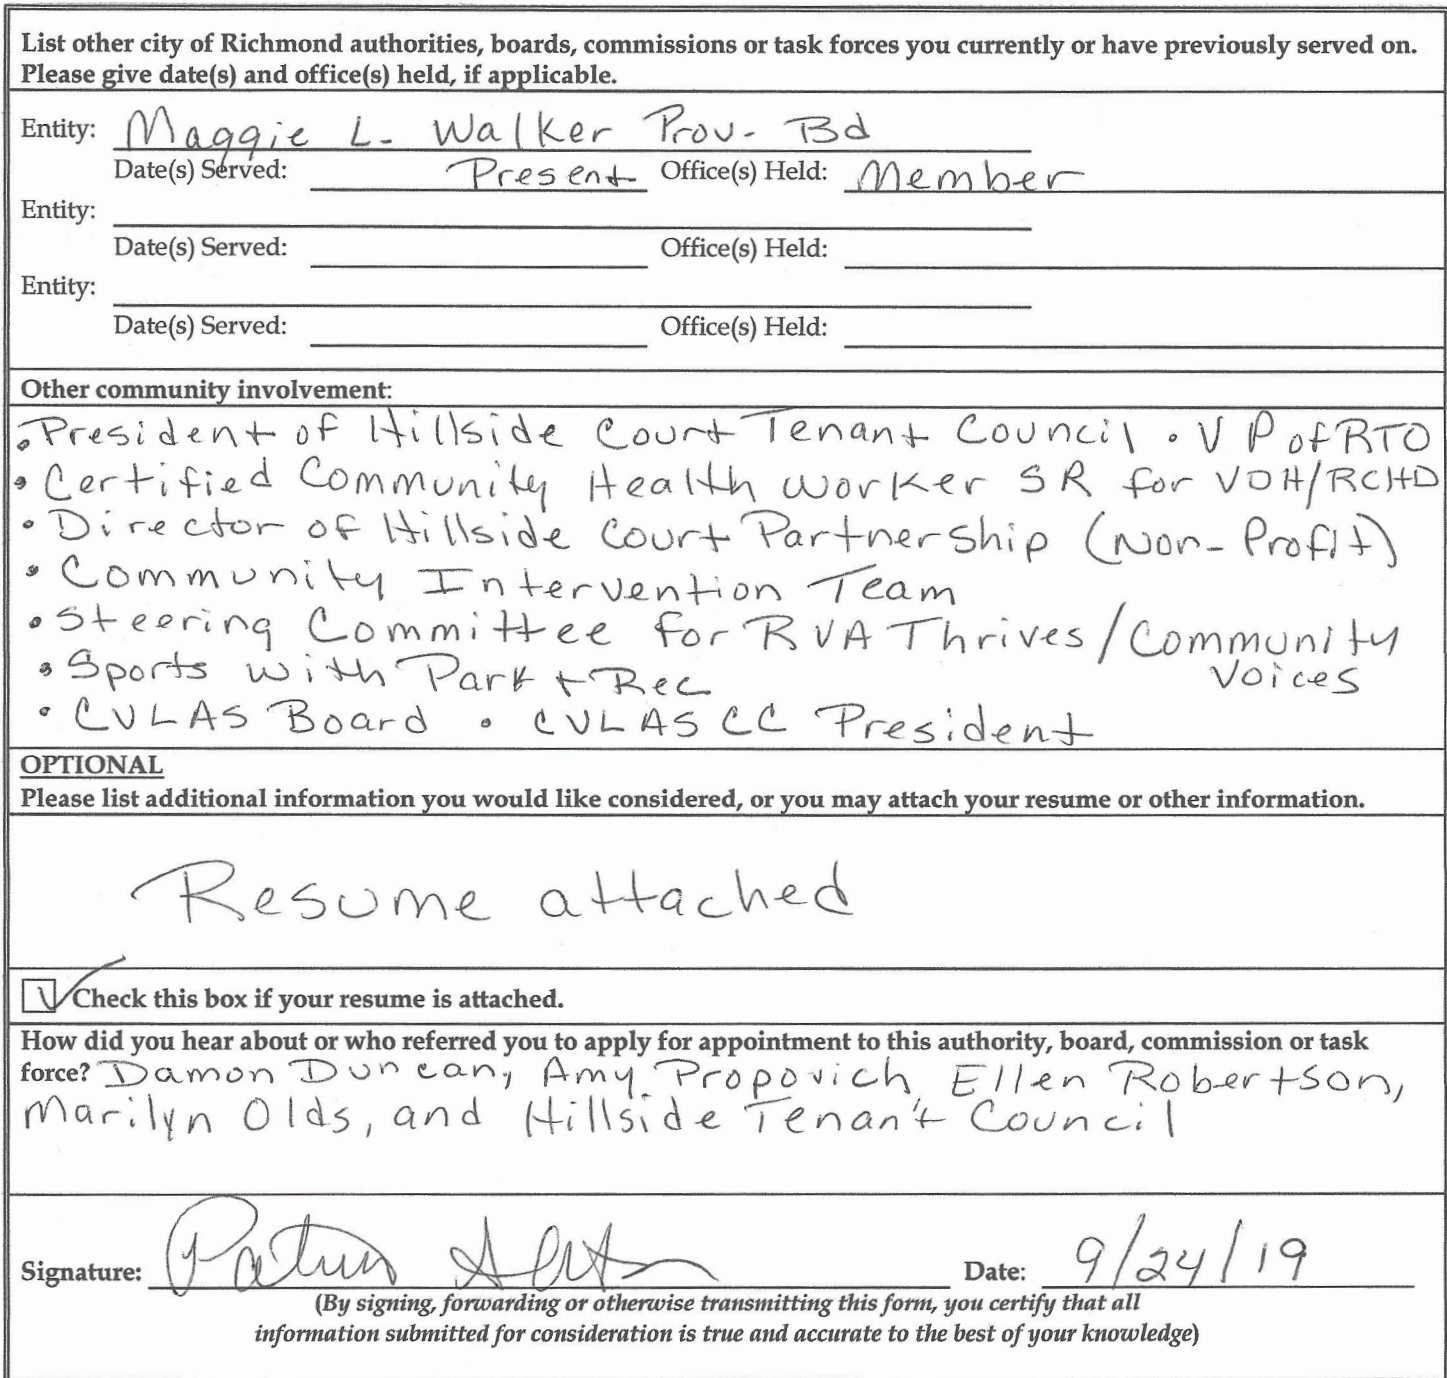 List other city of Richmond authorities, boards, commissions or task forces you currently or have previously served on.
Please give date(s) and office(s) held, if applicable.
Entity: Maggie L. Walker Prov. Bd
Date(s) Served: Present Office(s) Held: Member
Entity:
Date(s) Served: Office(s) Held:
Entity:
Date(s) Served: Office(s) Held:
Other community involvement:
• President of Hillside Court Tenant Council • VP of RTO
• Certified Community Health Worker SR for VDH/RCHD
• Director of Hillside Court Partnership (Non-Profit)
• Community Intervention Team
• Steering Committee for RVA Thrives/Community
Voices
• Sports with Park + Rec
• CVLAS Board • CVLAS CC President
OPTIONAL
Please list additional information you would like considered, or you may attach your resume or other information.
Resume attached
Check this box if your resume is attached.
How did you hear about or who referred you to apply for appointment to this authority, board, commission or task
force? Damon Duncan, Amy Propovich, Ellen Robertson,
Marilyn Olds, and Hillside Tenan't Council
Signature: Date: 9/24/19
(By signing, forwarding or otherwise transmitting this form, you certify that all
information submitted for consideration is true and accurate to the best of your knowledge)